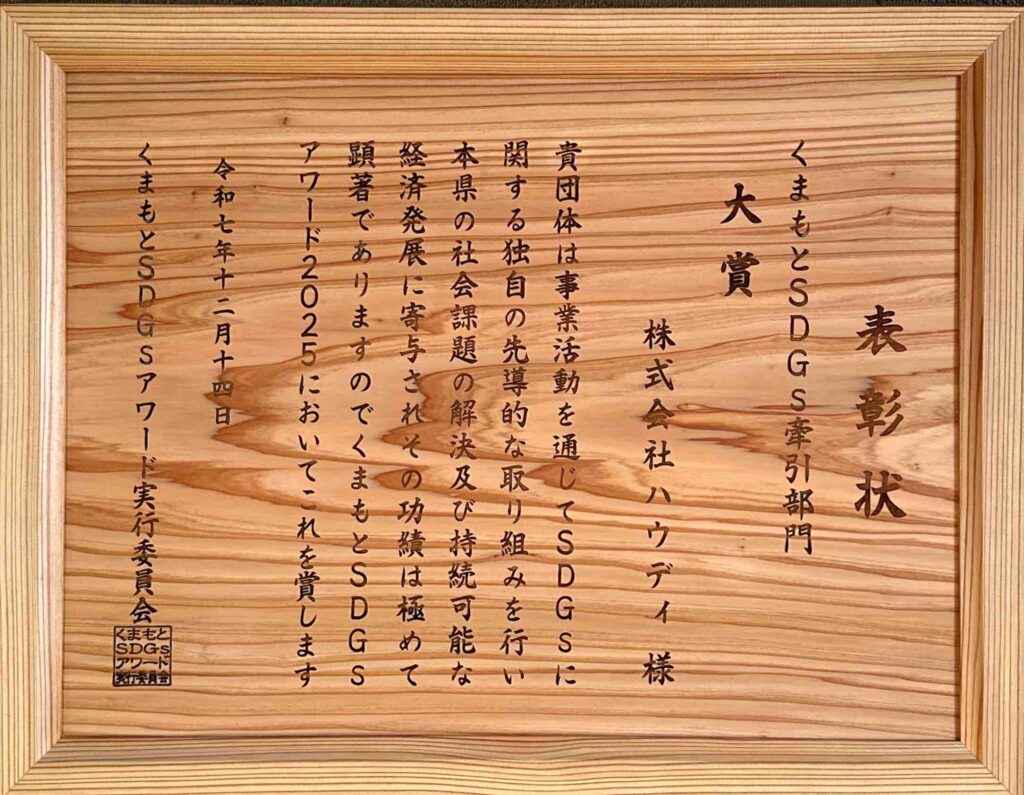 表彰状
くまもとSDGs牽引部門
大賞
株式会社ハウディ 様
貴団体は事業活動を通じてSDGsに
関する独自の先導的な取り組みを行い
本県の社会課題の解決及び持続可能な
経済発展に寄与されその功績は極めて
顕著でありますのでくまもとSDGs
アワード2025においてこれを賞します
令和七年十二月十四日
くまもとSDGsアワード実行委員会
くまもと
SDGs
アワード
実行委員会